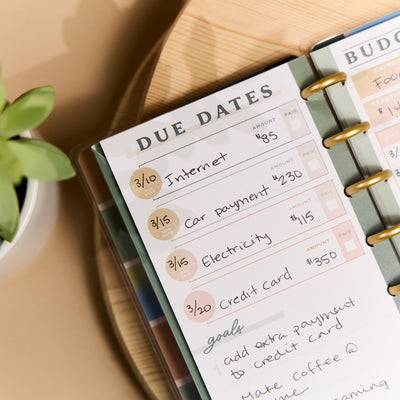 DUE DATES
AMOUNT PAID
3/10 Internet $85
AMOUNT PAID
3/15 Car payment $230
AMOUNT PAID
3/15 Electricity $115
AMOUNT PAID
3/20 Credit Card $350
goals
add extra payment
to credit card
Make coffee @
BUDG
Foo